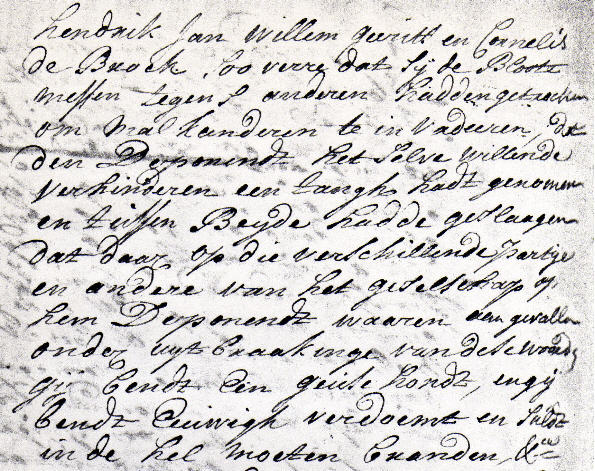 hendrik Jan willem gerritt en Cornelis
de Broek, Soo verre dat Sij de Bloote
messen tegen S anderen hadden getrocken
om malkanderen te invadeeren, dat
den Deponendt het Selve willende
verhinderen een tangh hadt genomen
en tussen Beyde hadde geslaagen
dat daar op die verschillende partye
en andere van het geselschap op
hem Deponendt waaren aen gevallen
onder uyt braakinge van dese woorde
gij bendt Een geuse hondt, en gij
bendt Eeuwigh verdoemt en Suldt
in de hel moeten branden, &ca